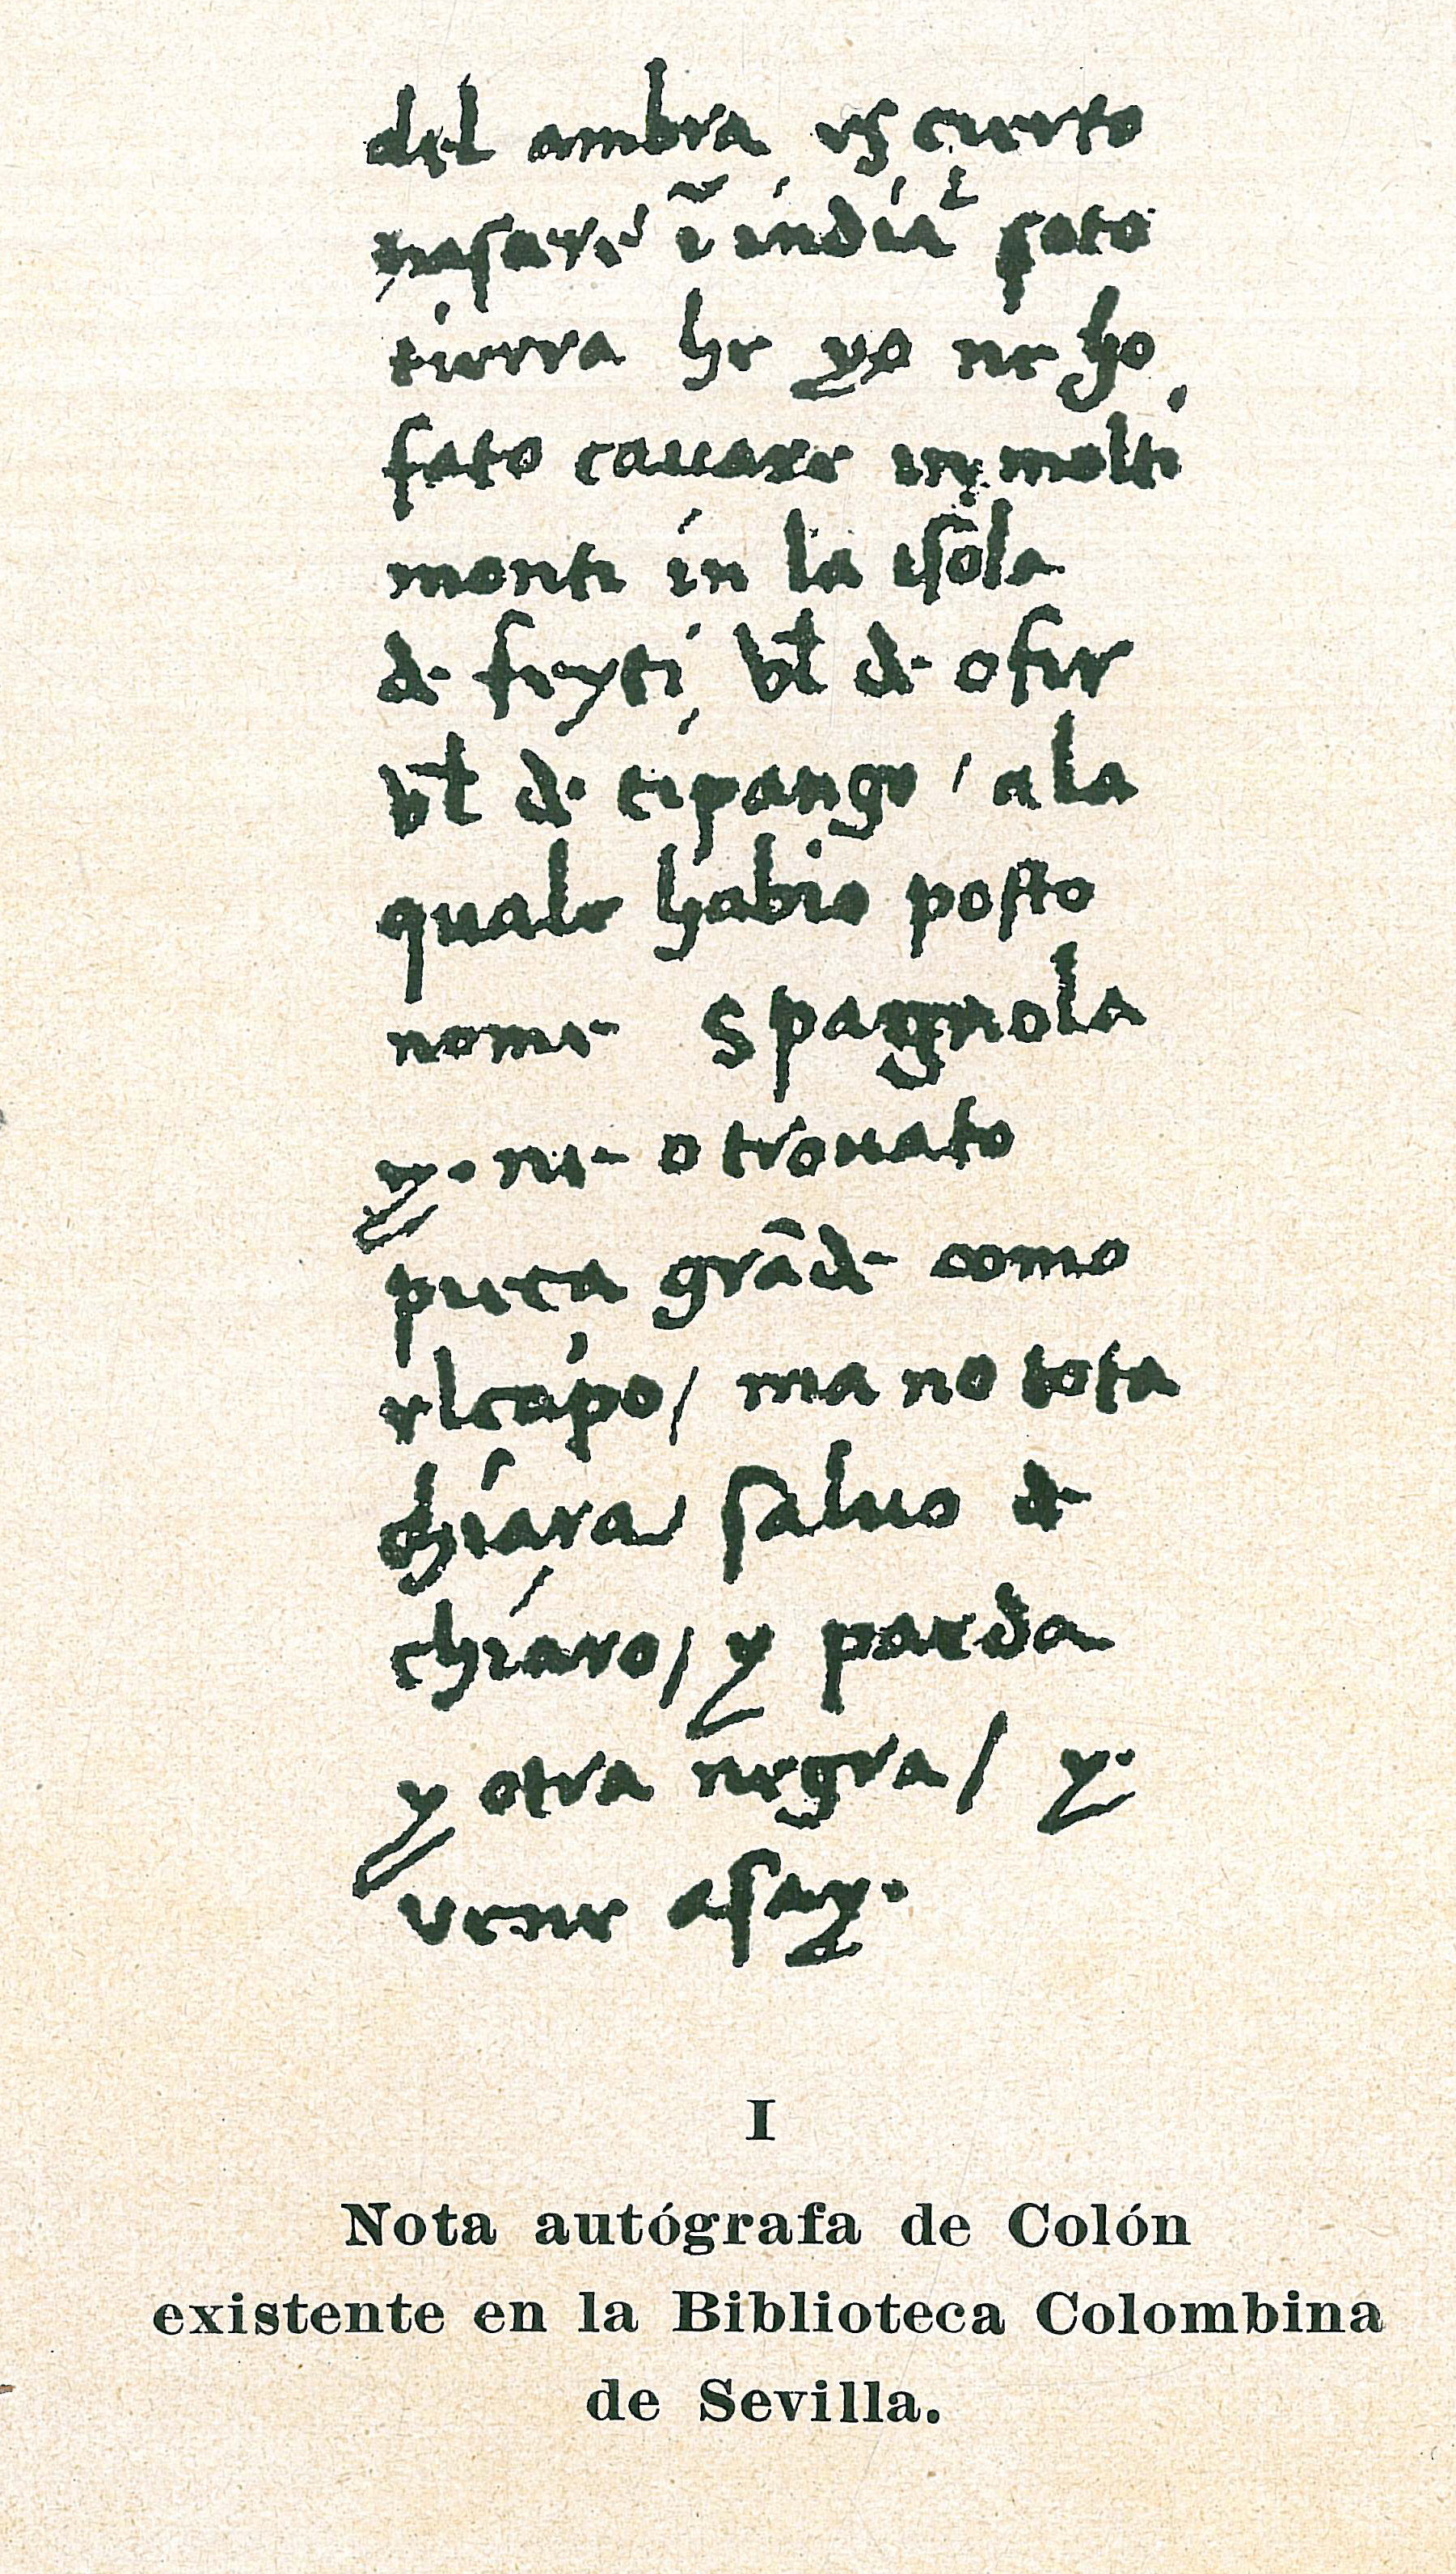 del ambra es cierto
nascere ĩ india soto
tierra he yo ne ho
fato cauare in molti
monti in la isola
de feyti vel de ofir
vel de cipango / a la
quale habio posto
nome Spagnola
y ne o trouato
pieça grãde como
el capo / ma no tota
chiara / saluo de
chiaro / y parda
y otra negra / y
vene asay.
I
Nota autógrafa de Colón
existente en la Biblioteca Colombina
de Sevilla.